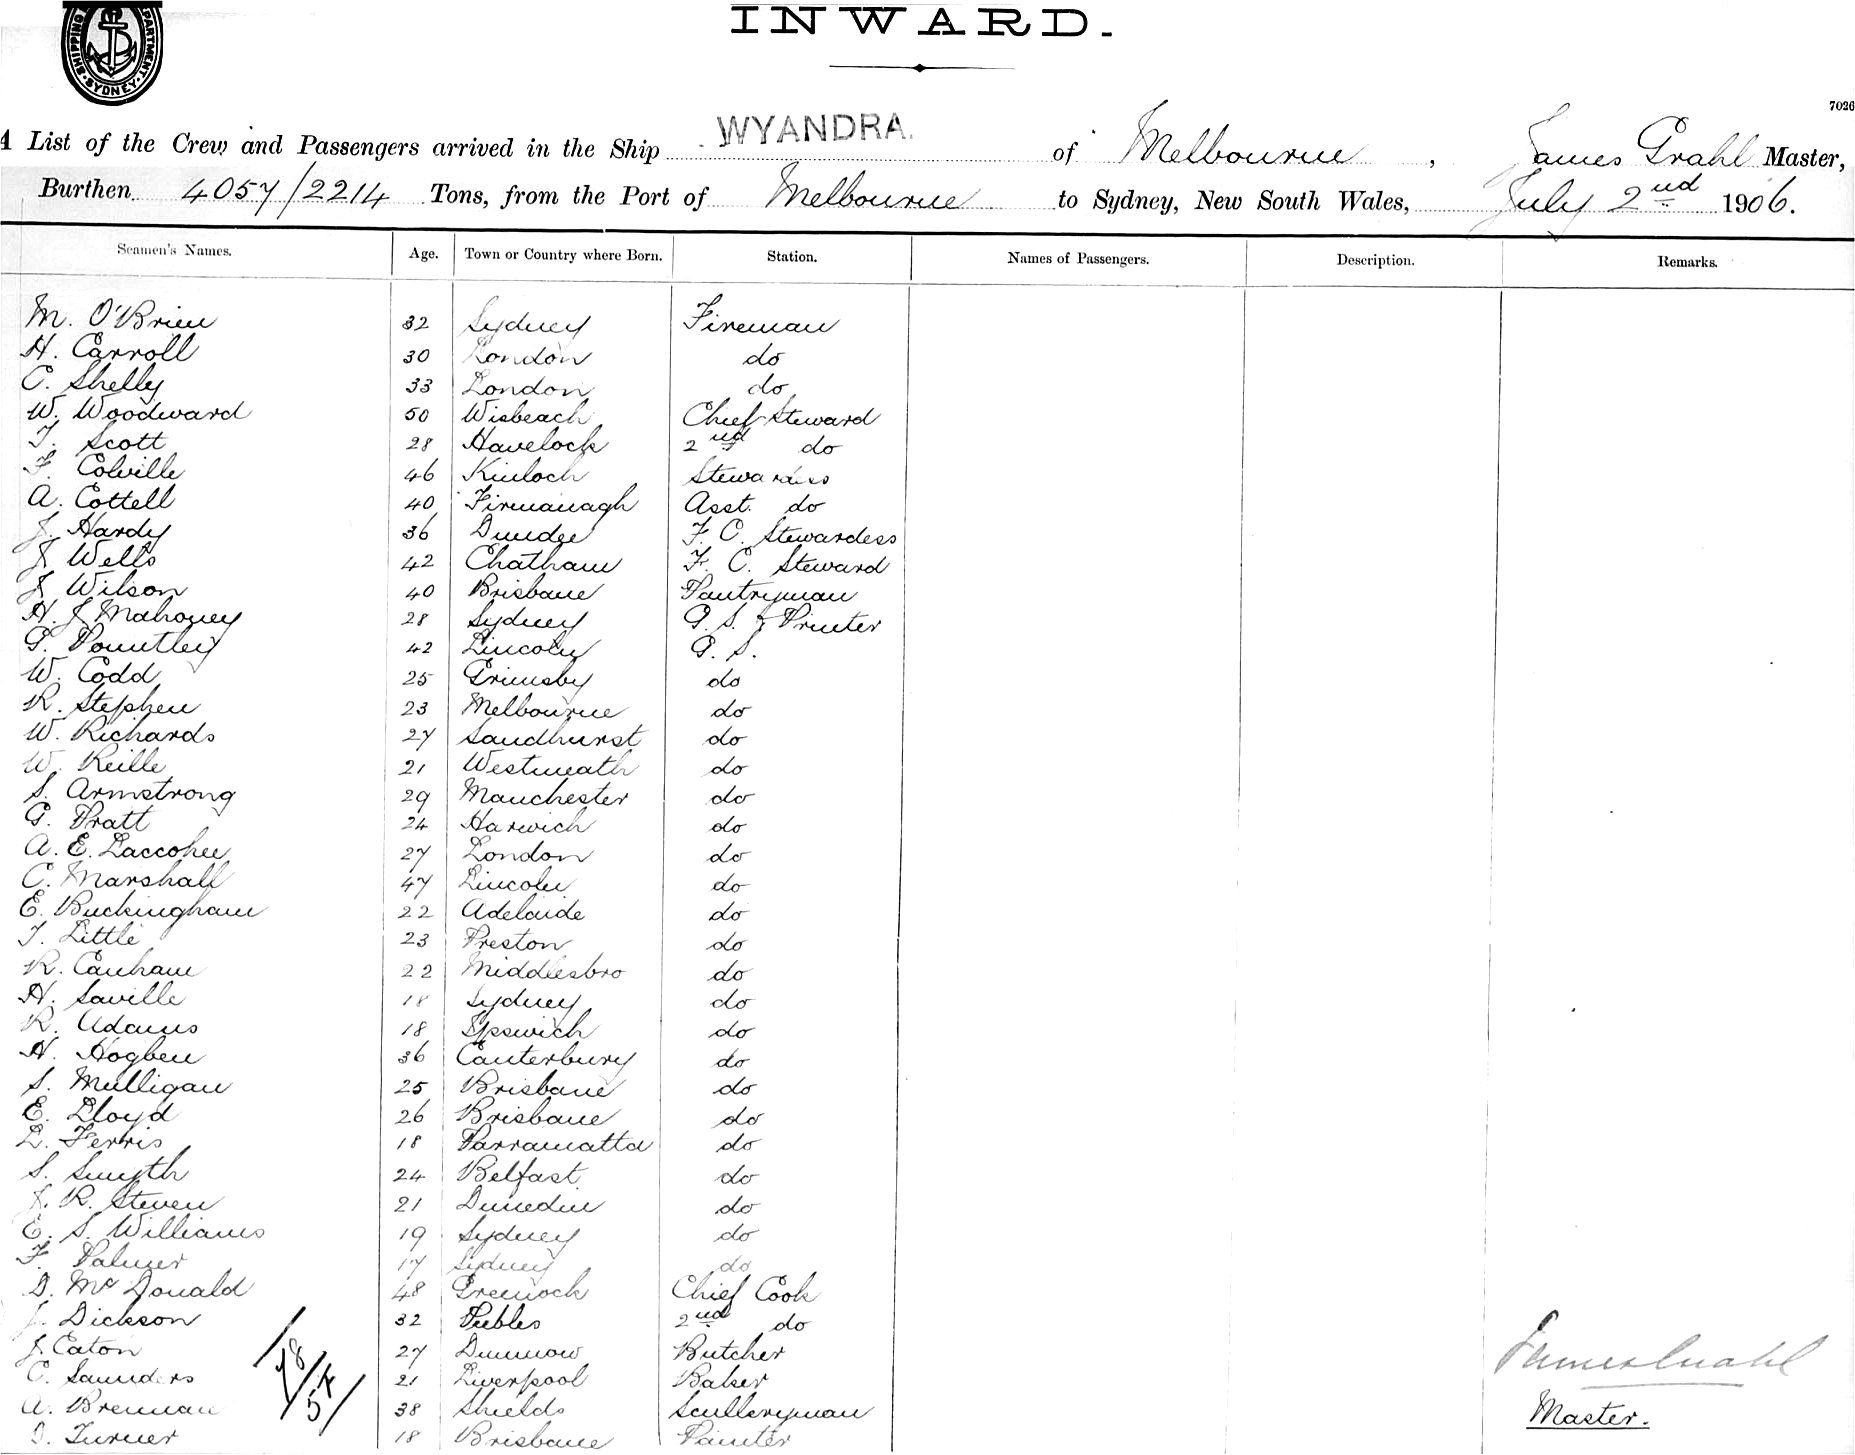 INWARD.
SHIPPING DEPARTMENT SYDNEY
7026
A List of the Crew and Passengers arrived in the Ship WYANDRA. of Melbourne, James Grahl Master,
Burthen 4057/2214 Tons, from the Port of Melbourne to Sydney, New South Wales, July 2nd 1906.
Seamen's Names. Age. Town or Country where Born. Station. Names of Passengers. Description. Remarks.
M. O'Brien 32 Sydney Fireman
H. Carroll 30 London do
C. Shelly 33 London do
W. Woodward 50 Wisbeach Chief Steward
T. Scott 28 Havelock 2nd do
F. Colville 46 Kinloch Stewardess
A. Cottell 40 Firmanagh Asst. do
J. Hardy 36 Dundee F. C. Stewardess
J Wells 42 Chatham F. C. Steward
J Wilson 40 Brisbane Pantryman
H. J Mahoney 28 Sydney G. S. & Printer
G. Pountley 42 Lincoln G. S.
W. Codd 25 Grimsby do
R. Stephen 23 Melbourne do
W. Richards 27 Sandhurst do
W. Reille 21 Westmeath do
S. Armstrong 29 Manchester do
G. Pratt 24 Harwich do
A. E. Laccohee 27 London do
C. Marshall 47 Lincoln do
E. Buckingham 22 Adelaide do
T. Little 23 Preston do
R. Canham 22 Middlesbro do
H. Saville 18 Sydney do
R. Adams 18 Ipswich do
H. Hogben 36 Canterbury do
S. Mulligan 25 Brisbane do
E. Lloyd 26 Brisbane do
L. Ferris 18 Parramatta do
S. Smyth 24 Belfast do
J. R. Steven 21 Dunedin do
E. S. Williams 19 Sydney do
F. Palmer 17 Sydney do
D. McDonald 48 Greenock Chief Cook
J. Dickson 32 Peebles 2nd do
J. Eaton 27 Dunmow Butcher
C. Saunders 21 Liverpool Baker
A. Brennan 38 Shields Sculleryman
D. Turner 18 Brisbane Painter
James Grahl
Master.